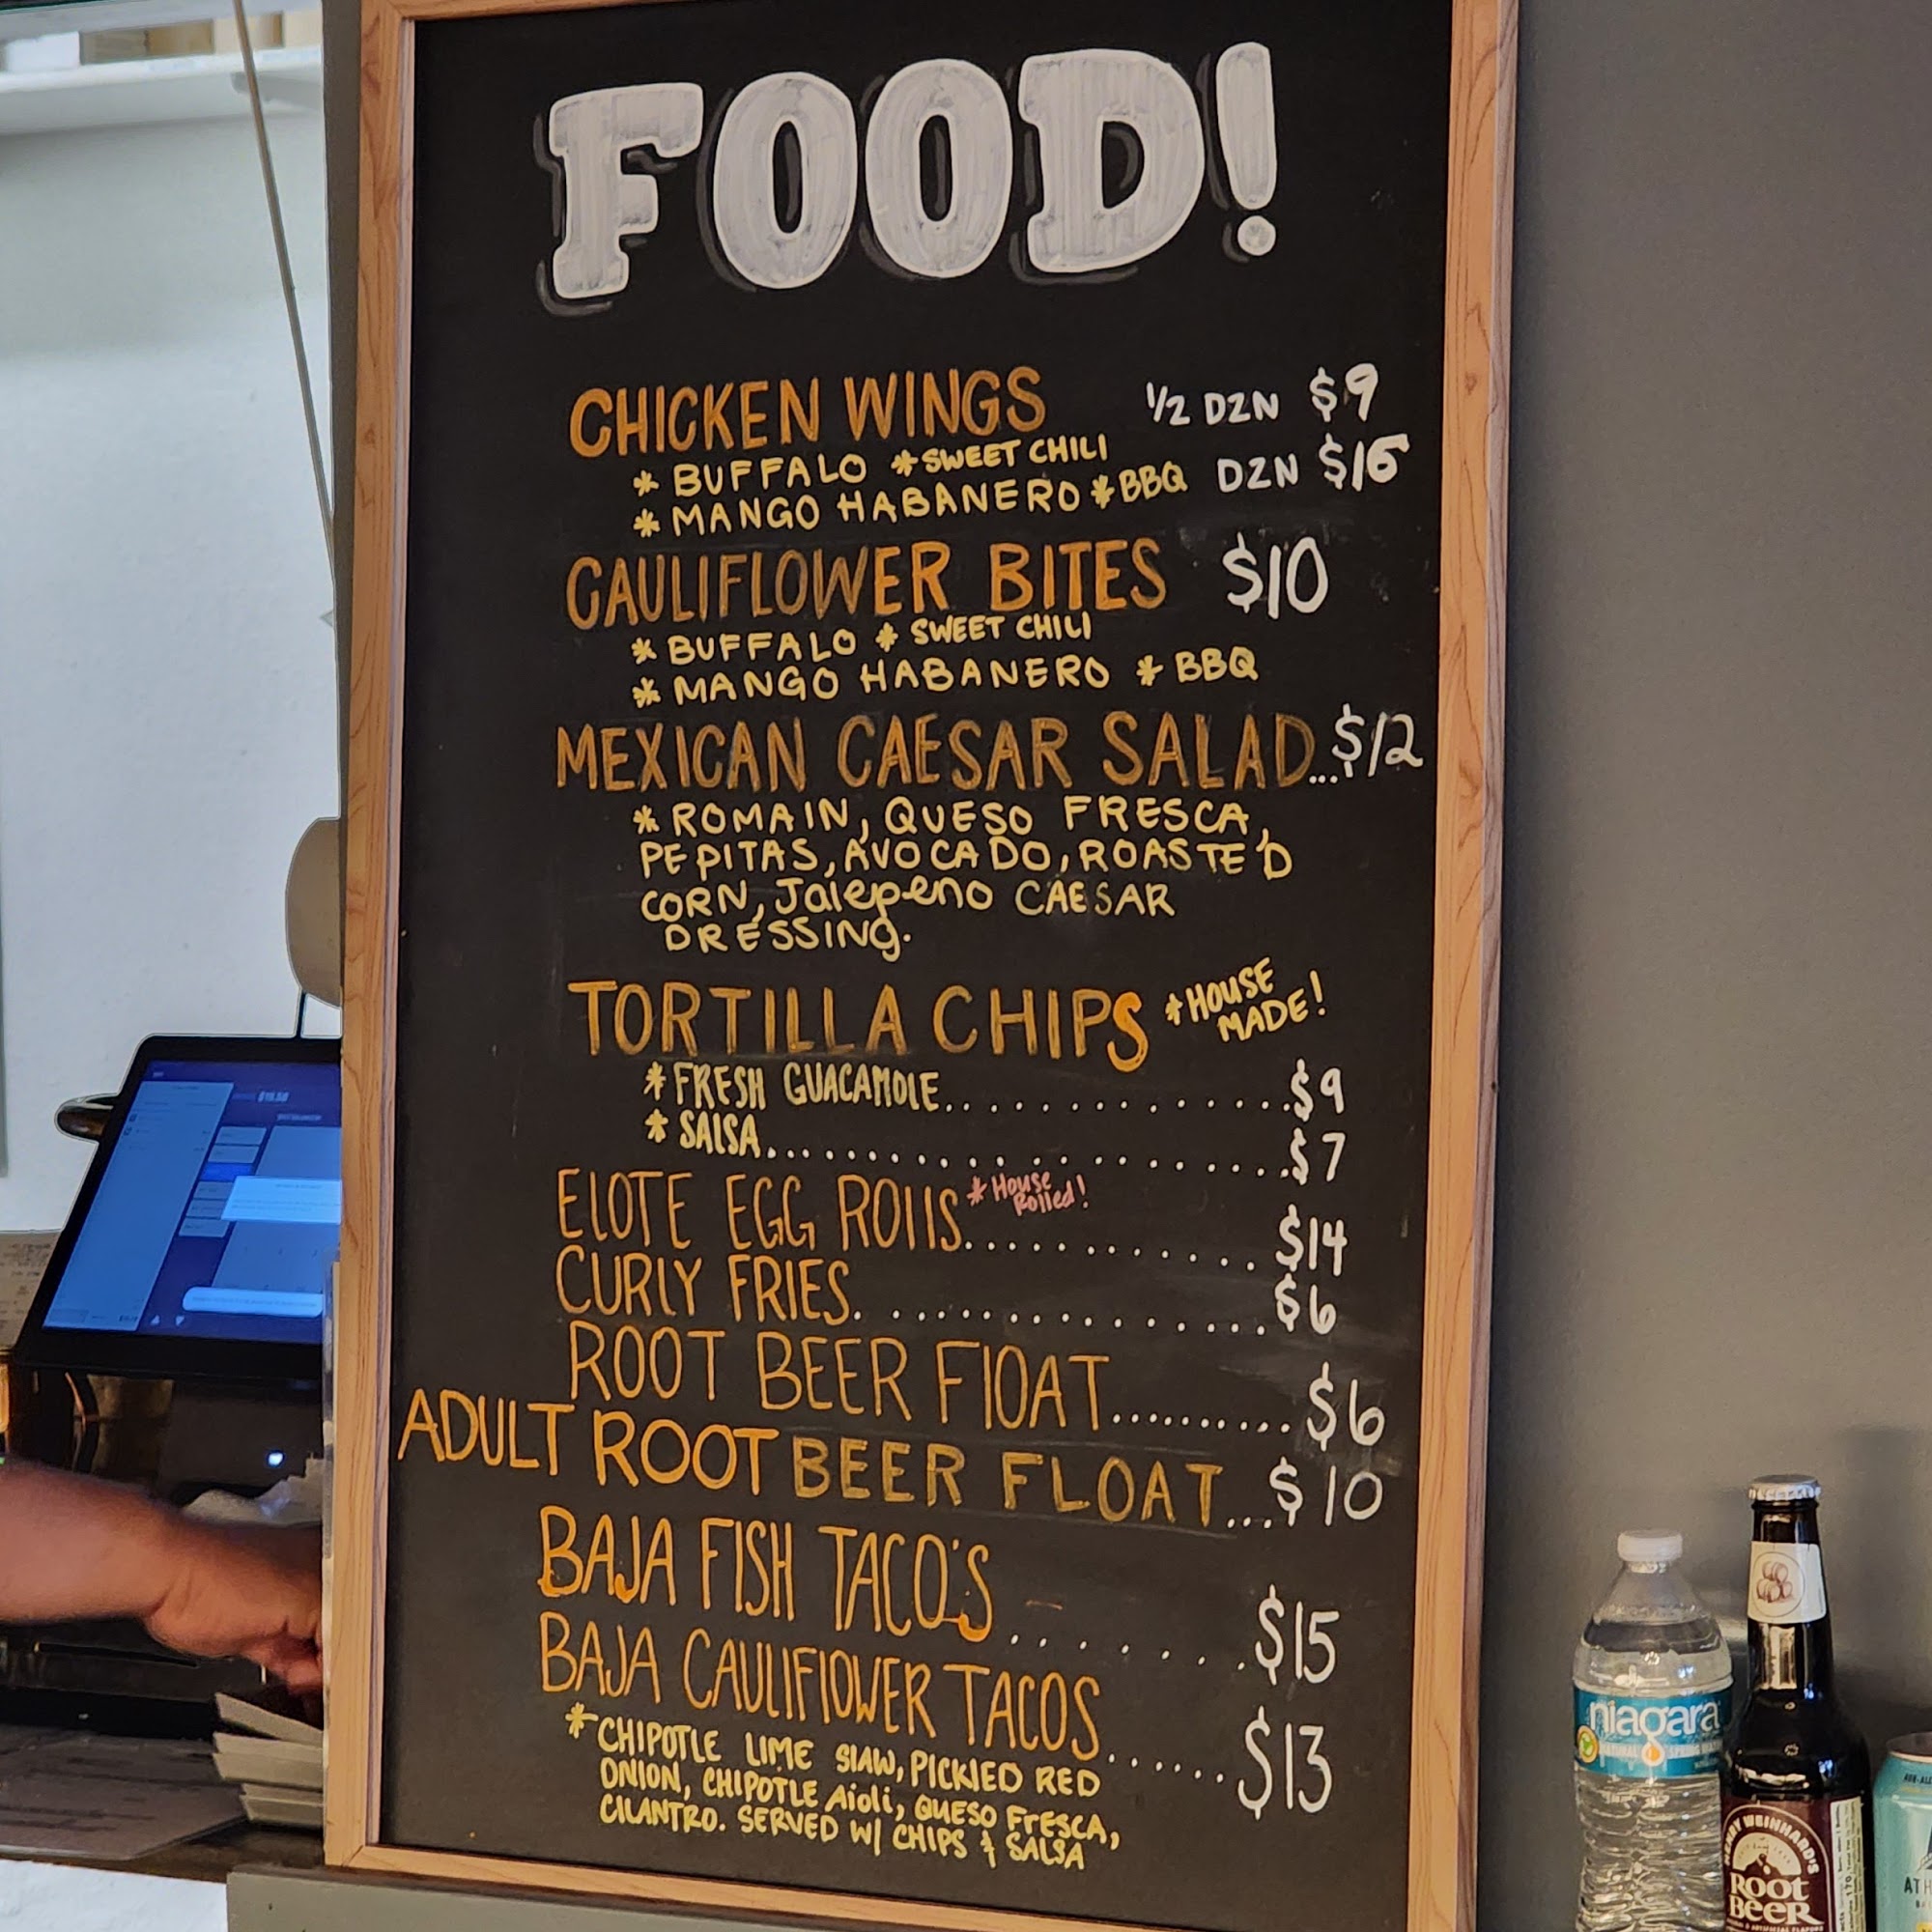 FOOD!
CHICKEN WINGS 1/2 DZN $9
* BUFFALO * SWEET CHILI
* MANGO HABANERO * BBQ DZN $16
CAULIFLOWER BITES $10
* BUFFALO * SWEET CHILI
* MANGO HABANERO * BBQ
MEXICAN CAESAR SALAD...$12
* ROMAIN, QUESO FRESCA,
PEPITAS, AVOCADO, ROASTED
CORN, Jalepeno CAESAR
DRESSING.
TORTILLA CHIPS * HOUSE
MADE!
* FRESH GUACAMOLE...............$9
* SALSA.......................$7
ELOTE EGG ROllS * House
Rolled!
............$14
CURLY FRIES.................$6
ROOT BEER FlOAT..........$6
ADULT ROOT BEER FLOAT...$10
BAJA FISH TACO'S.......$15
BAJA CAULIFlOWER TACOS......$13
* CHIPOTLE LIME SlAW, PICKlED RED
ONION, CHIPOTLE Aioli, QUESO FrESCA,
CILANTRO. SERVED W/ CHIPS & SALSA
niagara
NATURAL SPRING
HENRY WEINHARD'S
ROOT
BeeR